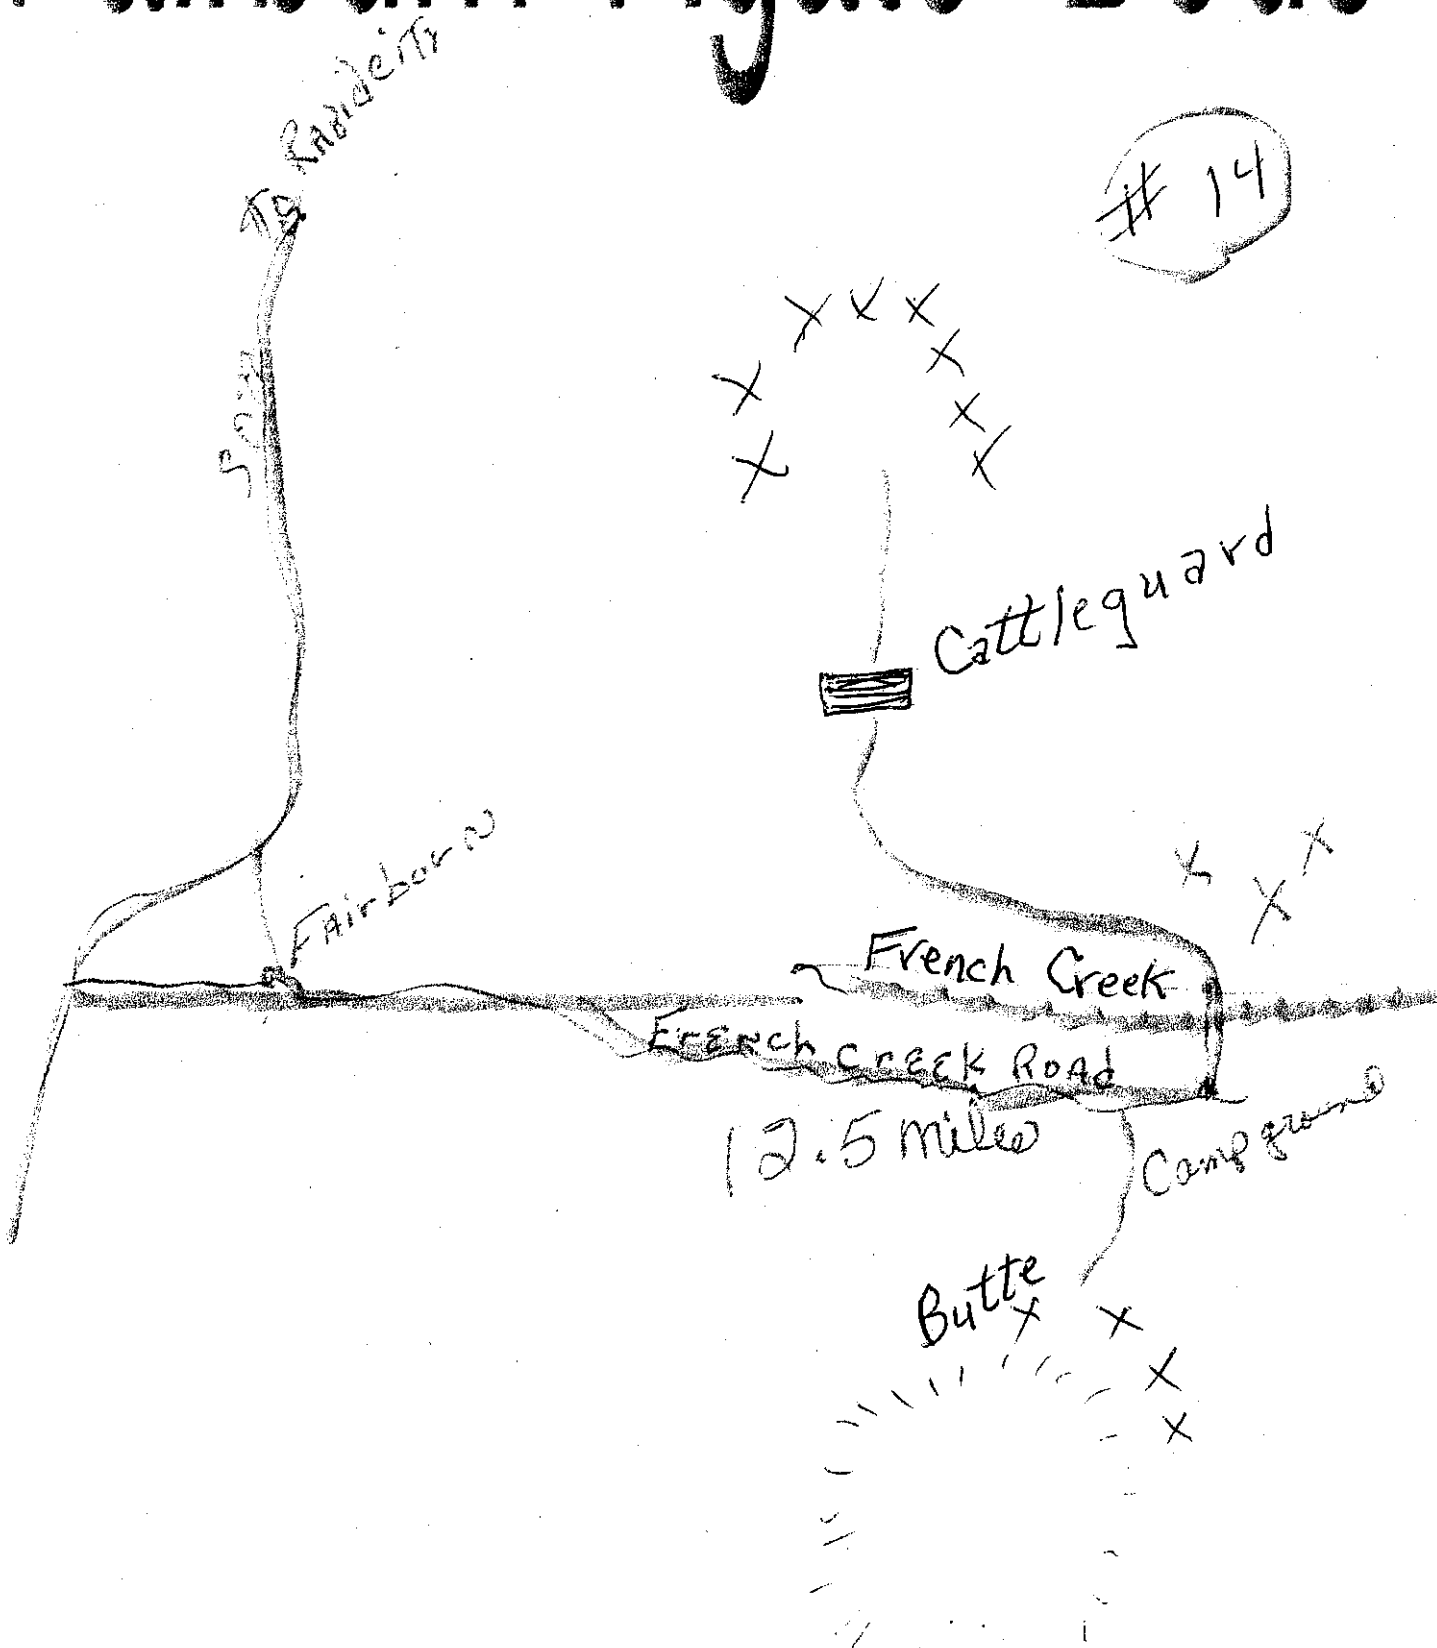 To Rapid City
# 14
Cattleguard
Fairborn
French Creek
French Creek Road
12.5 miles
Campground
Butte